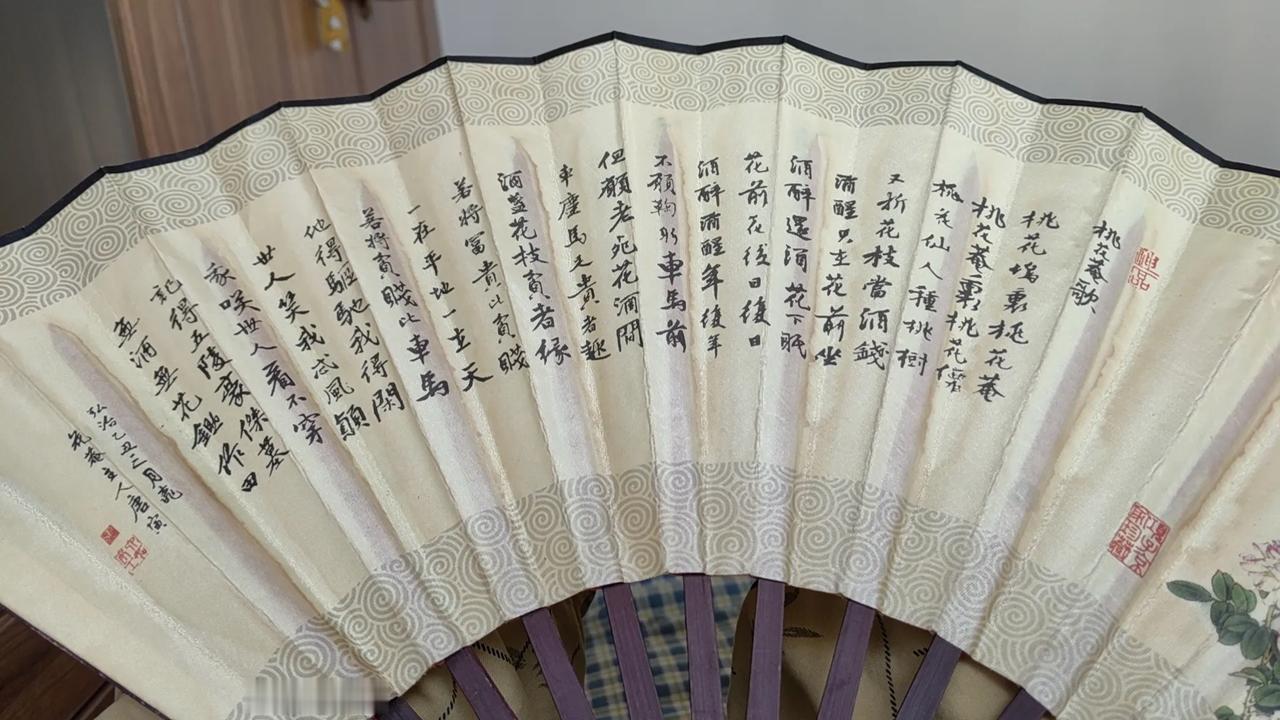 桃花菴歌
桃花塢裏桃花菴
桃花菴裏桃花僊
桃花仙人種桃樹
又折花枝當酒錢
酒醒只在花前坐
酒醉還酒花下眠
花前花後日後日
酒醉酒醒年後年
不願鞠躬車馬前
但願老死花酒間
車塵馬足貴者趣
酒盞花枝貧者緣
若將富貴比貧賤
一在平地一在天
若將貧賤比車馬
他得驅馳我得閑
世人笑我忒風顛
我咲世人看不穿
記得五陵豪傑墓
無酒無花鋤作田
弘治乙丑三月桃
花菴主人唐寅